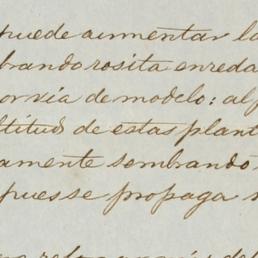 puede aumentar la
brando rosita enreda
por via de modelo: al p
ltitud de estas plant
amente sombrando
pues se propaga